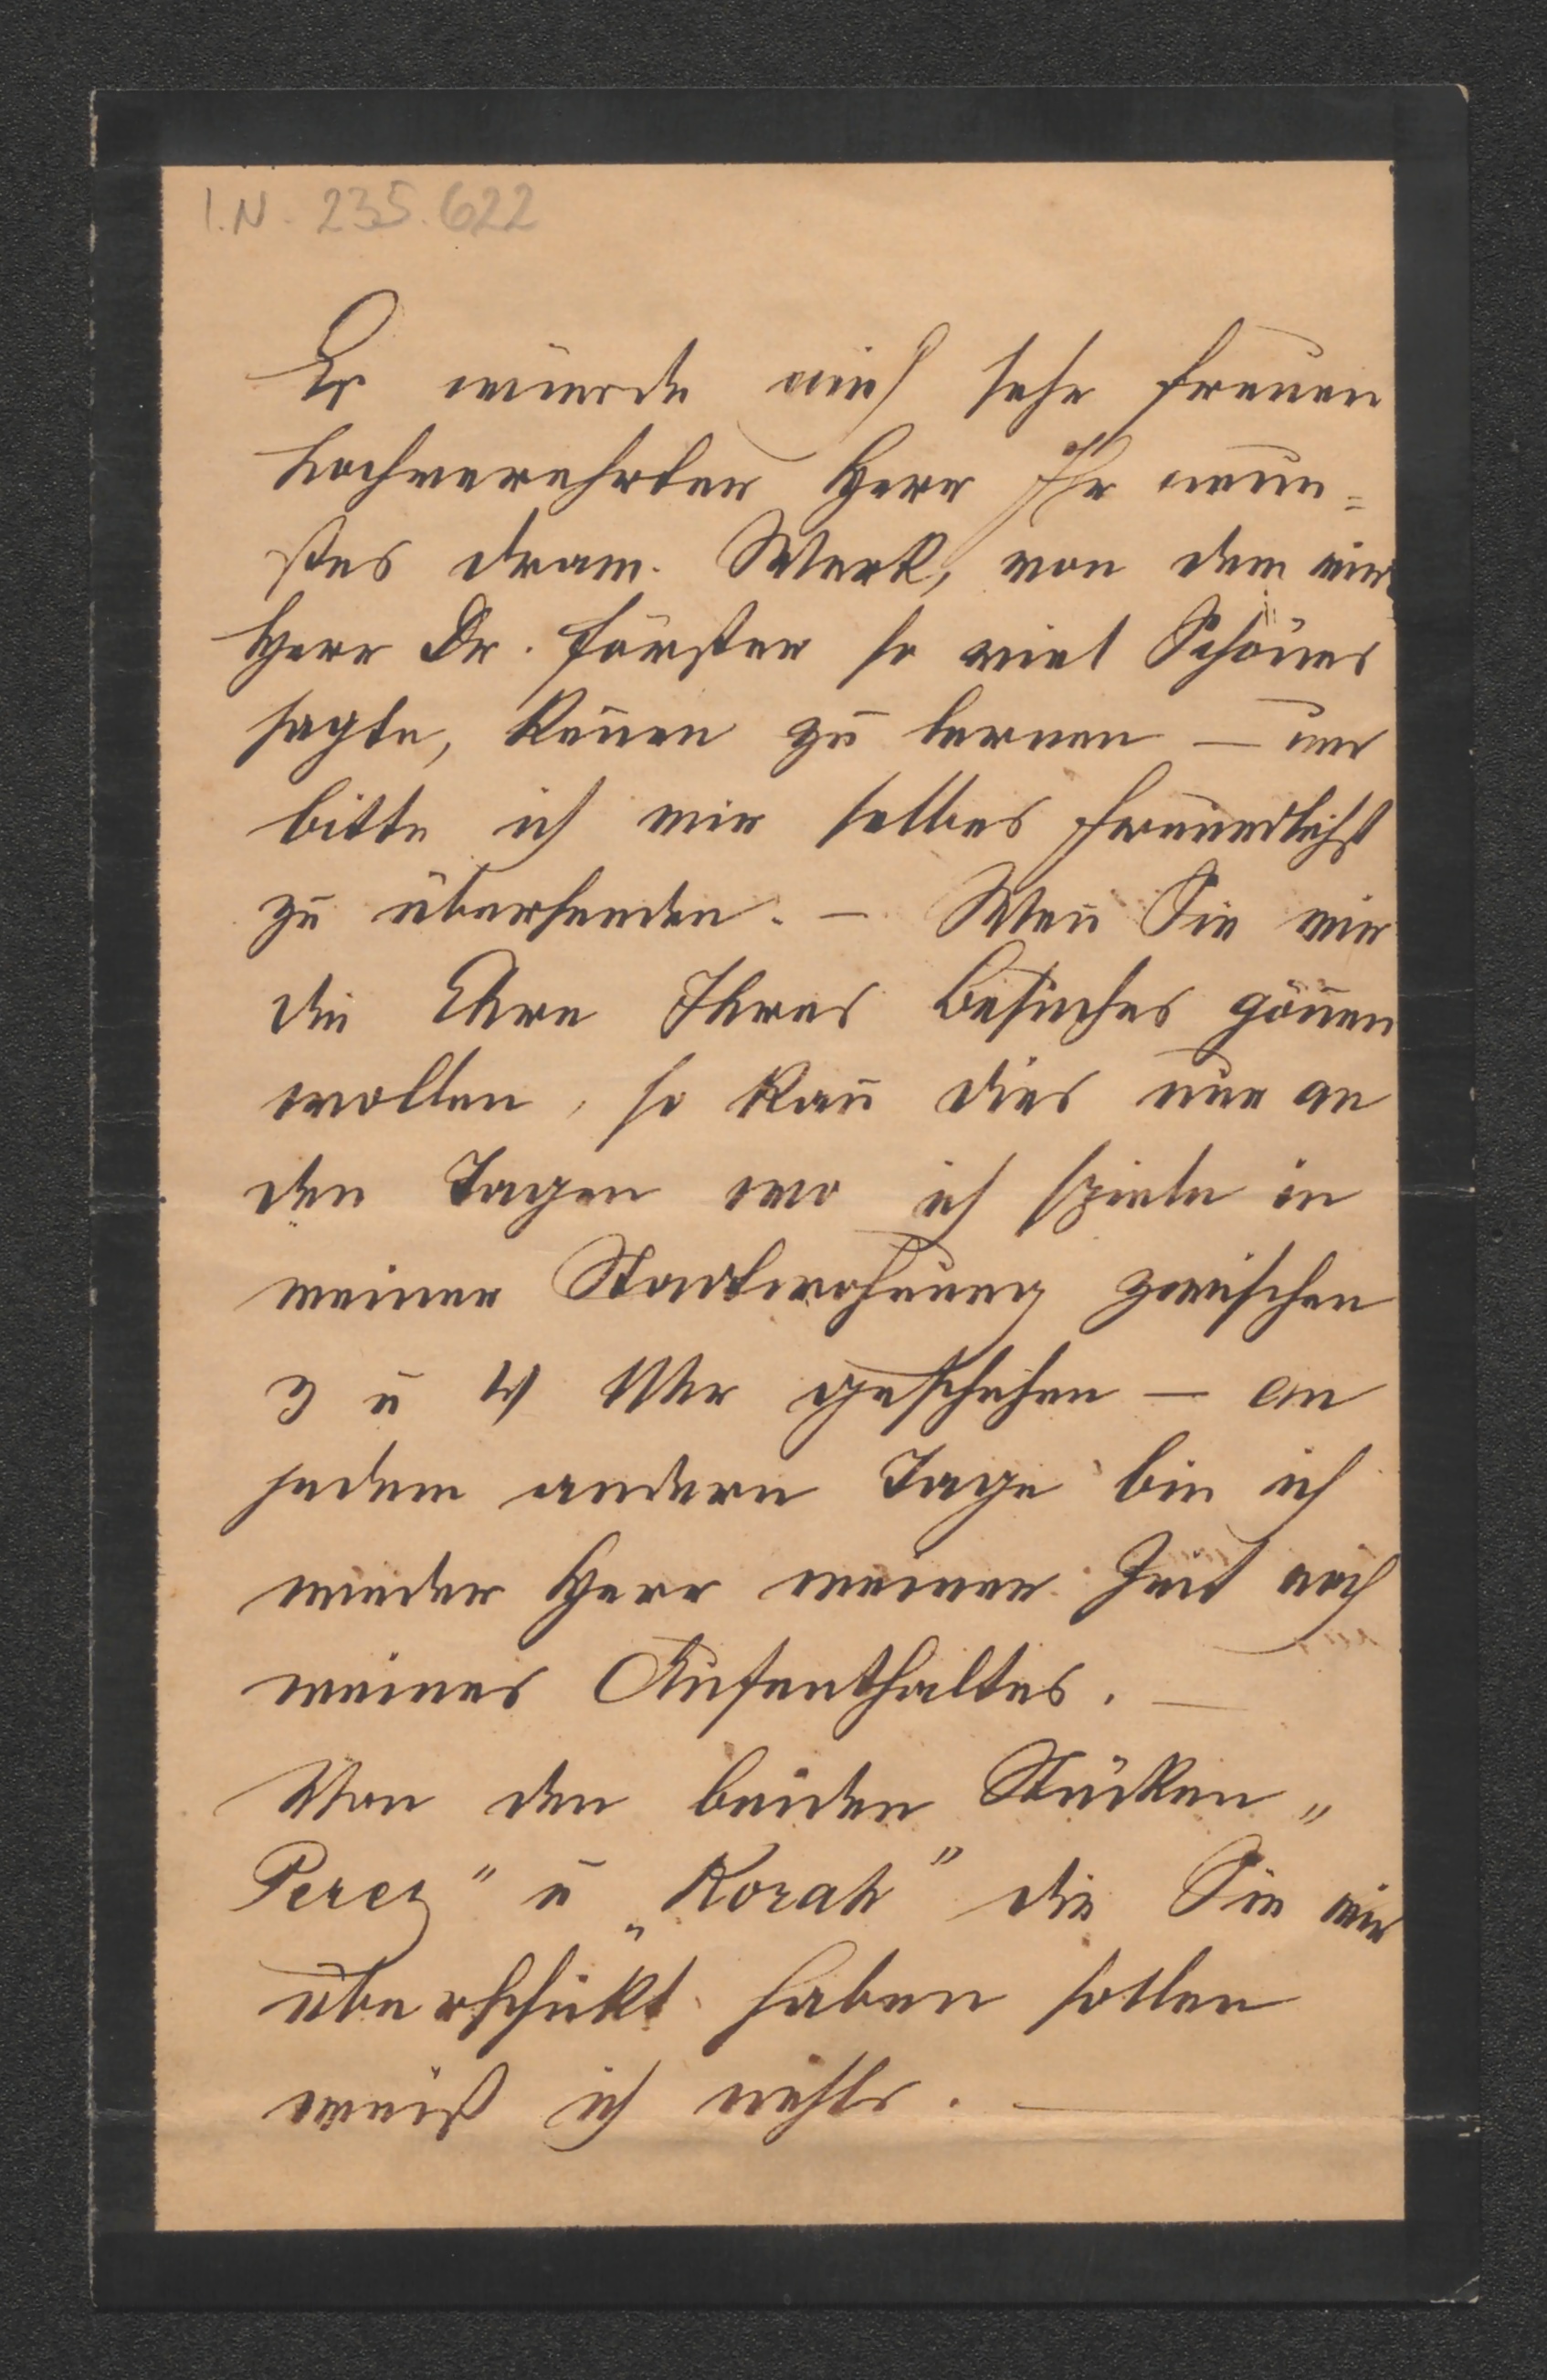 I.N. 235.622
Es würde mich sehr freuen
hochverehrter Herr Ihr neue=
stes dram. Werk, von dem mir
Herr Dr. Förster so viel Schönes
sagte, keñen zu lernen — um
bitte ich mir selbes freundlichst
zu übersenden. — Weñ Sie mir
die Ehre Ihres Besuches göñen
wollen, so kañ dies nur an
den Tagen wo ich spiele in
meiner Stadtwohnung zwischen
3 u 4 Uhr geschehen — an
jedem andern Tage bin ich
weder Herr meiner Zeit noch
meines Aufenthaltes. —
Von den beiden Stücken „
Perez" u „Korah" die Sie mir
überschickt haben sollen
weiß ich nichts. —